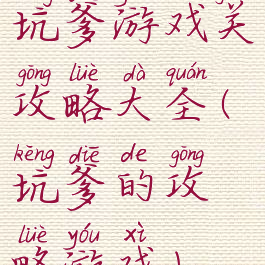 坑爹游戏关
gōng lüè dà quán
攻略大全(
kēng diē de gōng
坑爹的攻
lüè yóu xì
略游戏)